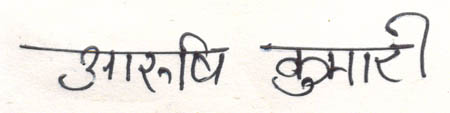 आरुषि कुमारी